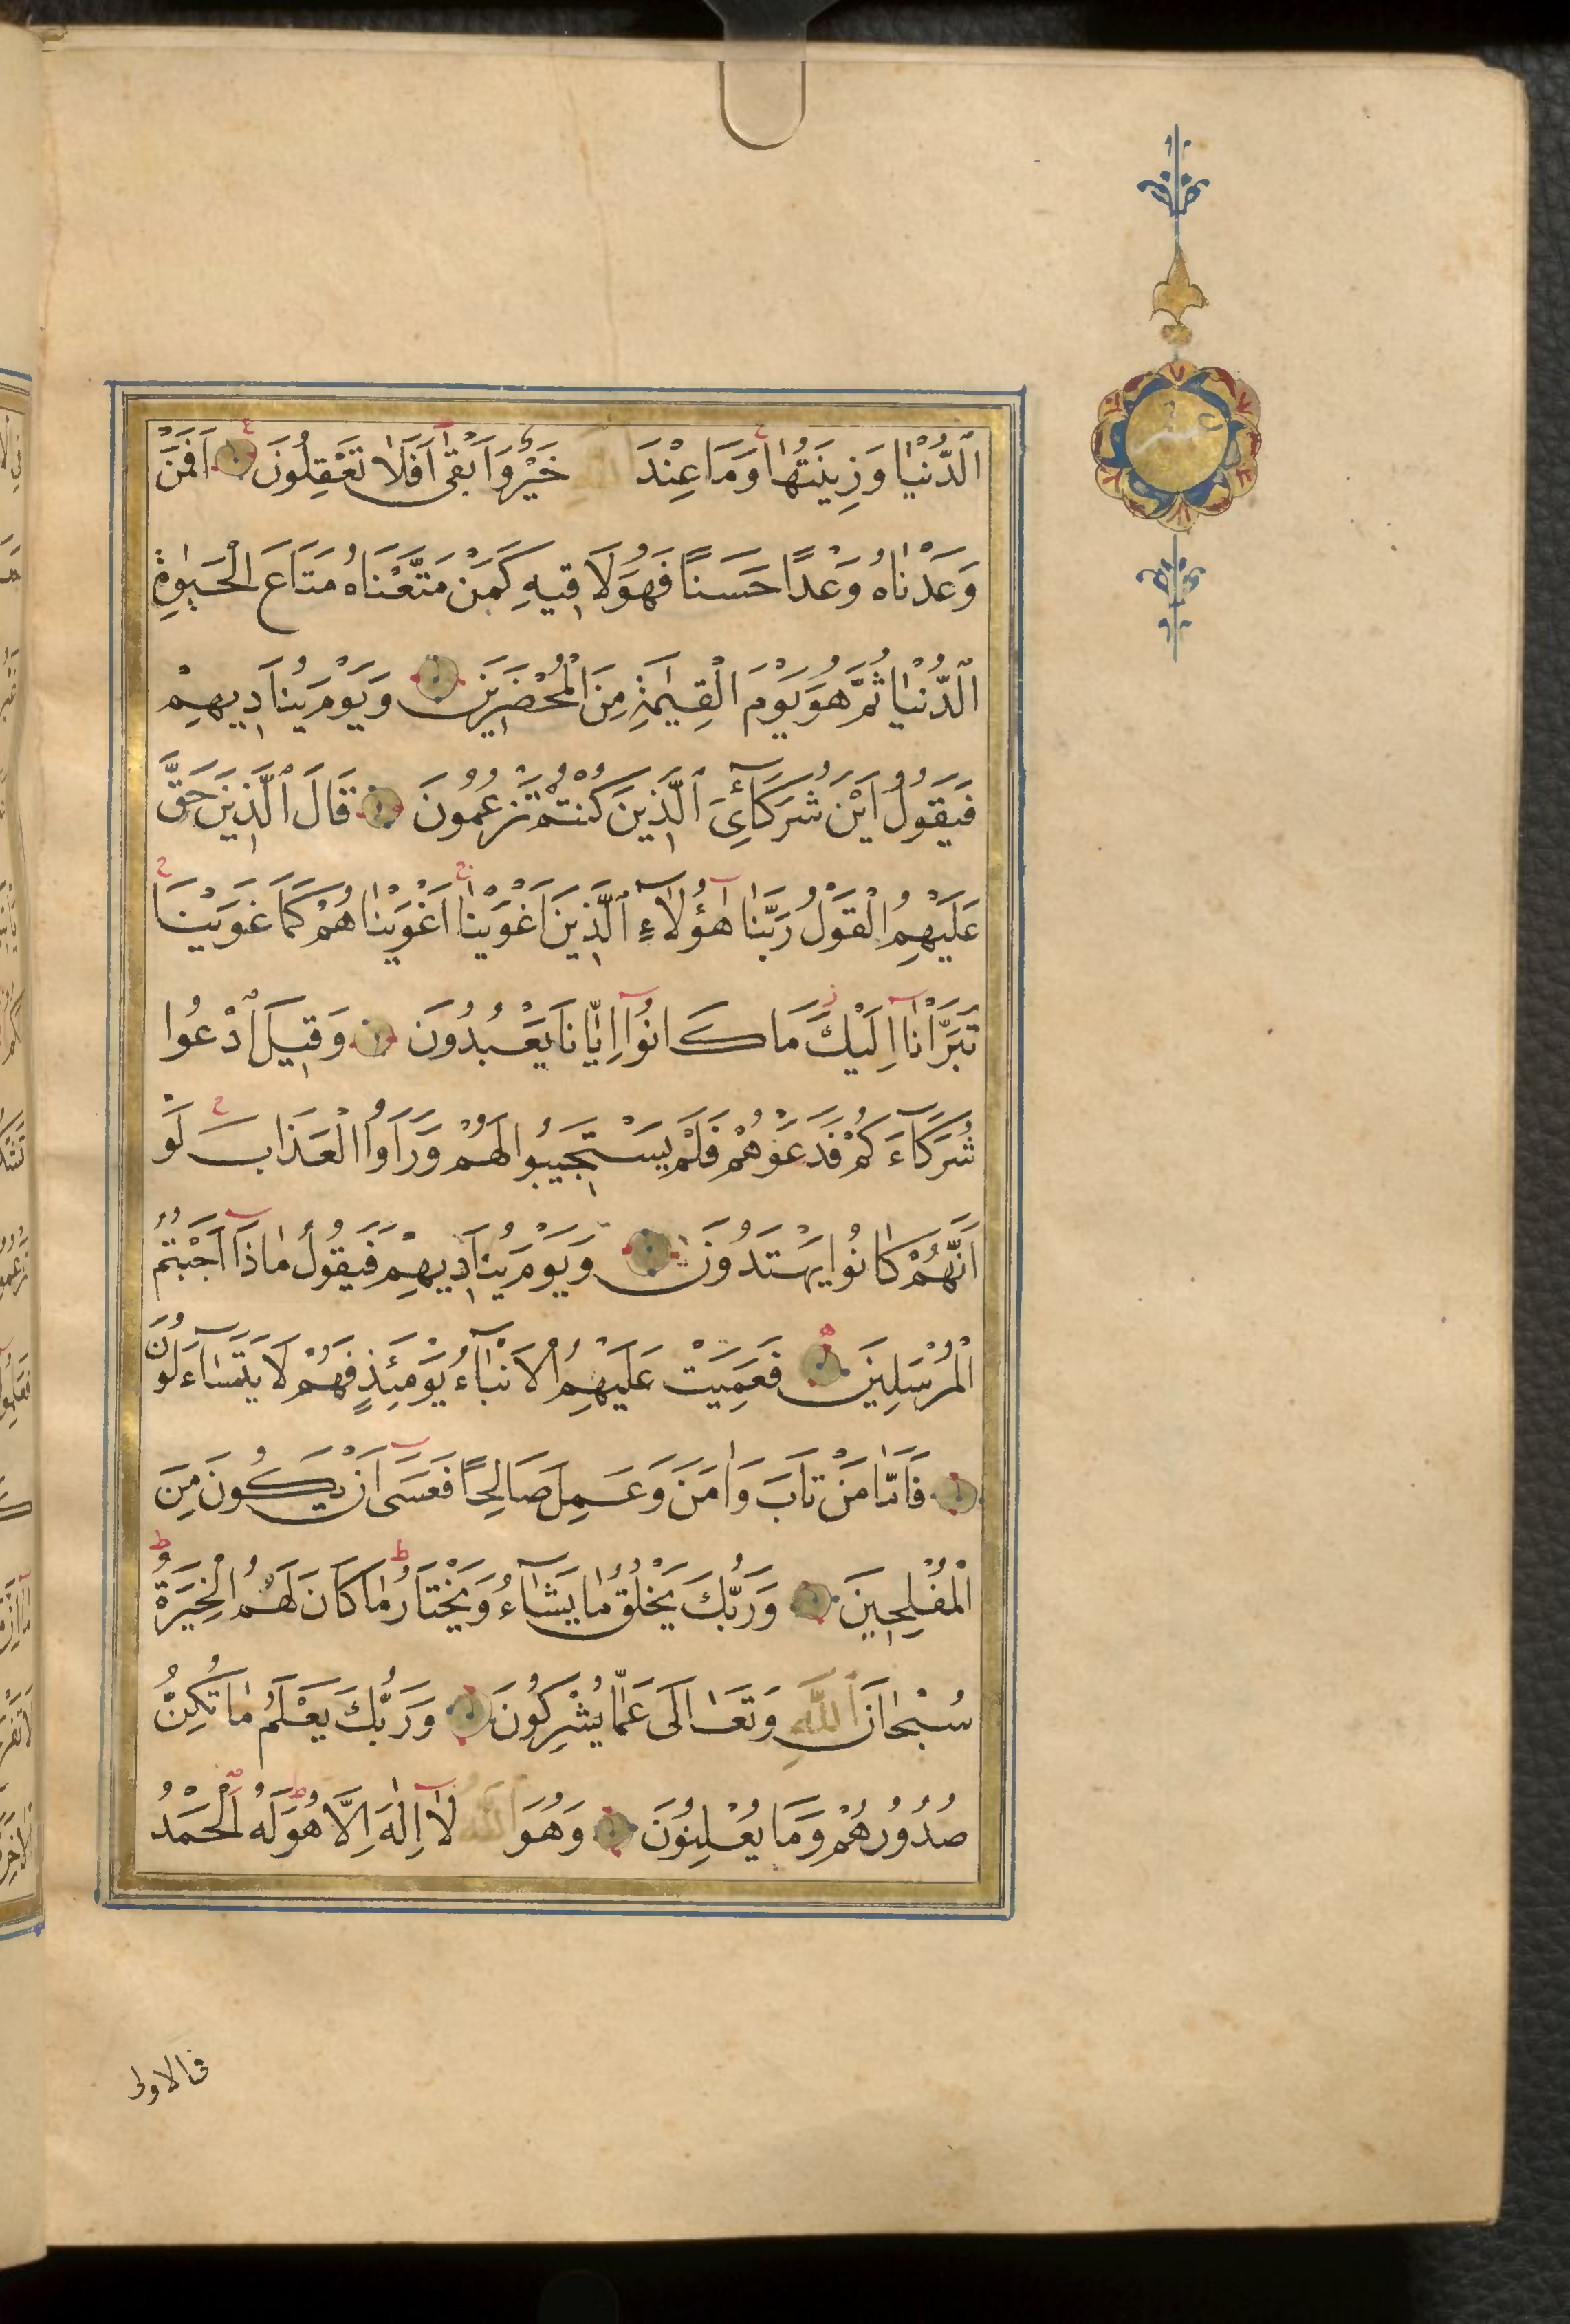 اَلدُّنْيَا وَزِينَتُهَا وَمَا عِنْدَ اللّٰهِ خَيْرٌ وَاَبْقٰى اَفَلَا تَعْقِلُونَ اَفَمَنْ
وَعَدْنَاهُ وَعْدًا حَسَنًا فَهُوَ لَاقِيهِ كَمَنْ مَتَّعْنَاهُ مَتَاعَ الْحَيٰوةِ
الدُّنْيَا ثُمَّ هُوَ يَوْمَ الْقِيٰمَةِ مِنَ الْمُحْضَرِينَ وَيَوْمَ يُنَادِيهِمْ
فَيَقُولُ اَيْنَ شُرَكَآئِيَ الَّذِينَ كُنْتُمْ تَزْعُمُونَ قَالَ الَّذِينَ حَقَّ
عَلَيْهِمُ الْقَوْلُ رَبَّنَا هٰٓؤُلَآءِ الَّذِينَ اَغْوَيْنَا اَغْوَيْنَاهُمْ كَمَا غَوَيْنَا
تَبَرَّأْنَآ اِلَيْكَ مَا كَانُوٓا اِيَّانَا يَعْبُدُونَ وَقِيلَ ادْعُوا
شُرَكَآءَكُمْ فَدَعَوْهُمْ فَلَمْ يَسْتَجِيبُوا لَهُمْ وَرَاَوُا الْعَذَابَ لَوْ
اَنَّهُمْ كَانُوا يَهْتَدُونَ وَيَوْمَ يُنَادِيهِمْ فَيَقُولُ مَاذَآ اَجَبْتُمُ
الْمُرْسَلِينَ فَعَمِيَتْ عَلَيْهِمُ الْاَنْبَآءُ يَوْمَئِذٍ فَهُمْ لَا يَتَسَآءَلُونَ
فَاَمَّا مَنْ تَابَ وَاٰمَنَ وَعَمِلَ صَالِحًا فَعَسٰٓى اَنْ يَكُونَ مِنَ
الْمُفْلِحِينَ وَرَبُّكَ يَخْلُقُ مَا يَشَآءُ وَيَخْتَارُ مَا كَانَ لَهُمُ الْخِيَرَةُ
سُبْحَانَ اللّٰهِ وَتَعَالٰى عَمَّا يُشْرِكُونَ وَرَبُّكَ يَعْلَمُ مَا تُكِنُّ
صُدُورُهُمْ وَمَا يُعْلِنُونَ وَهُوَ اللّٰهُ لَآ اِلٰهَ اِلَّا هُوَ لَهُ الْحَمْدُ
فى الاولى